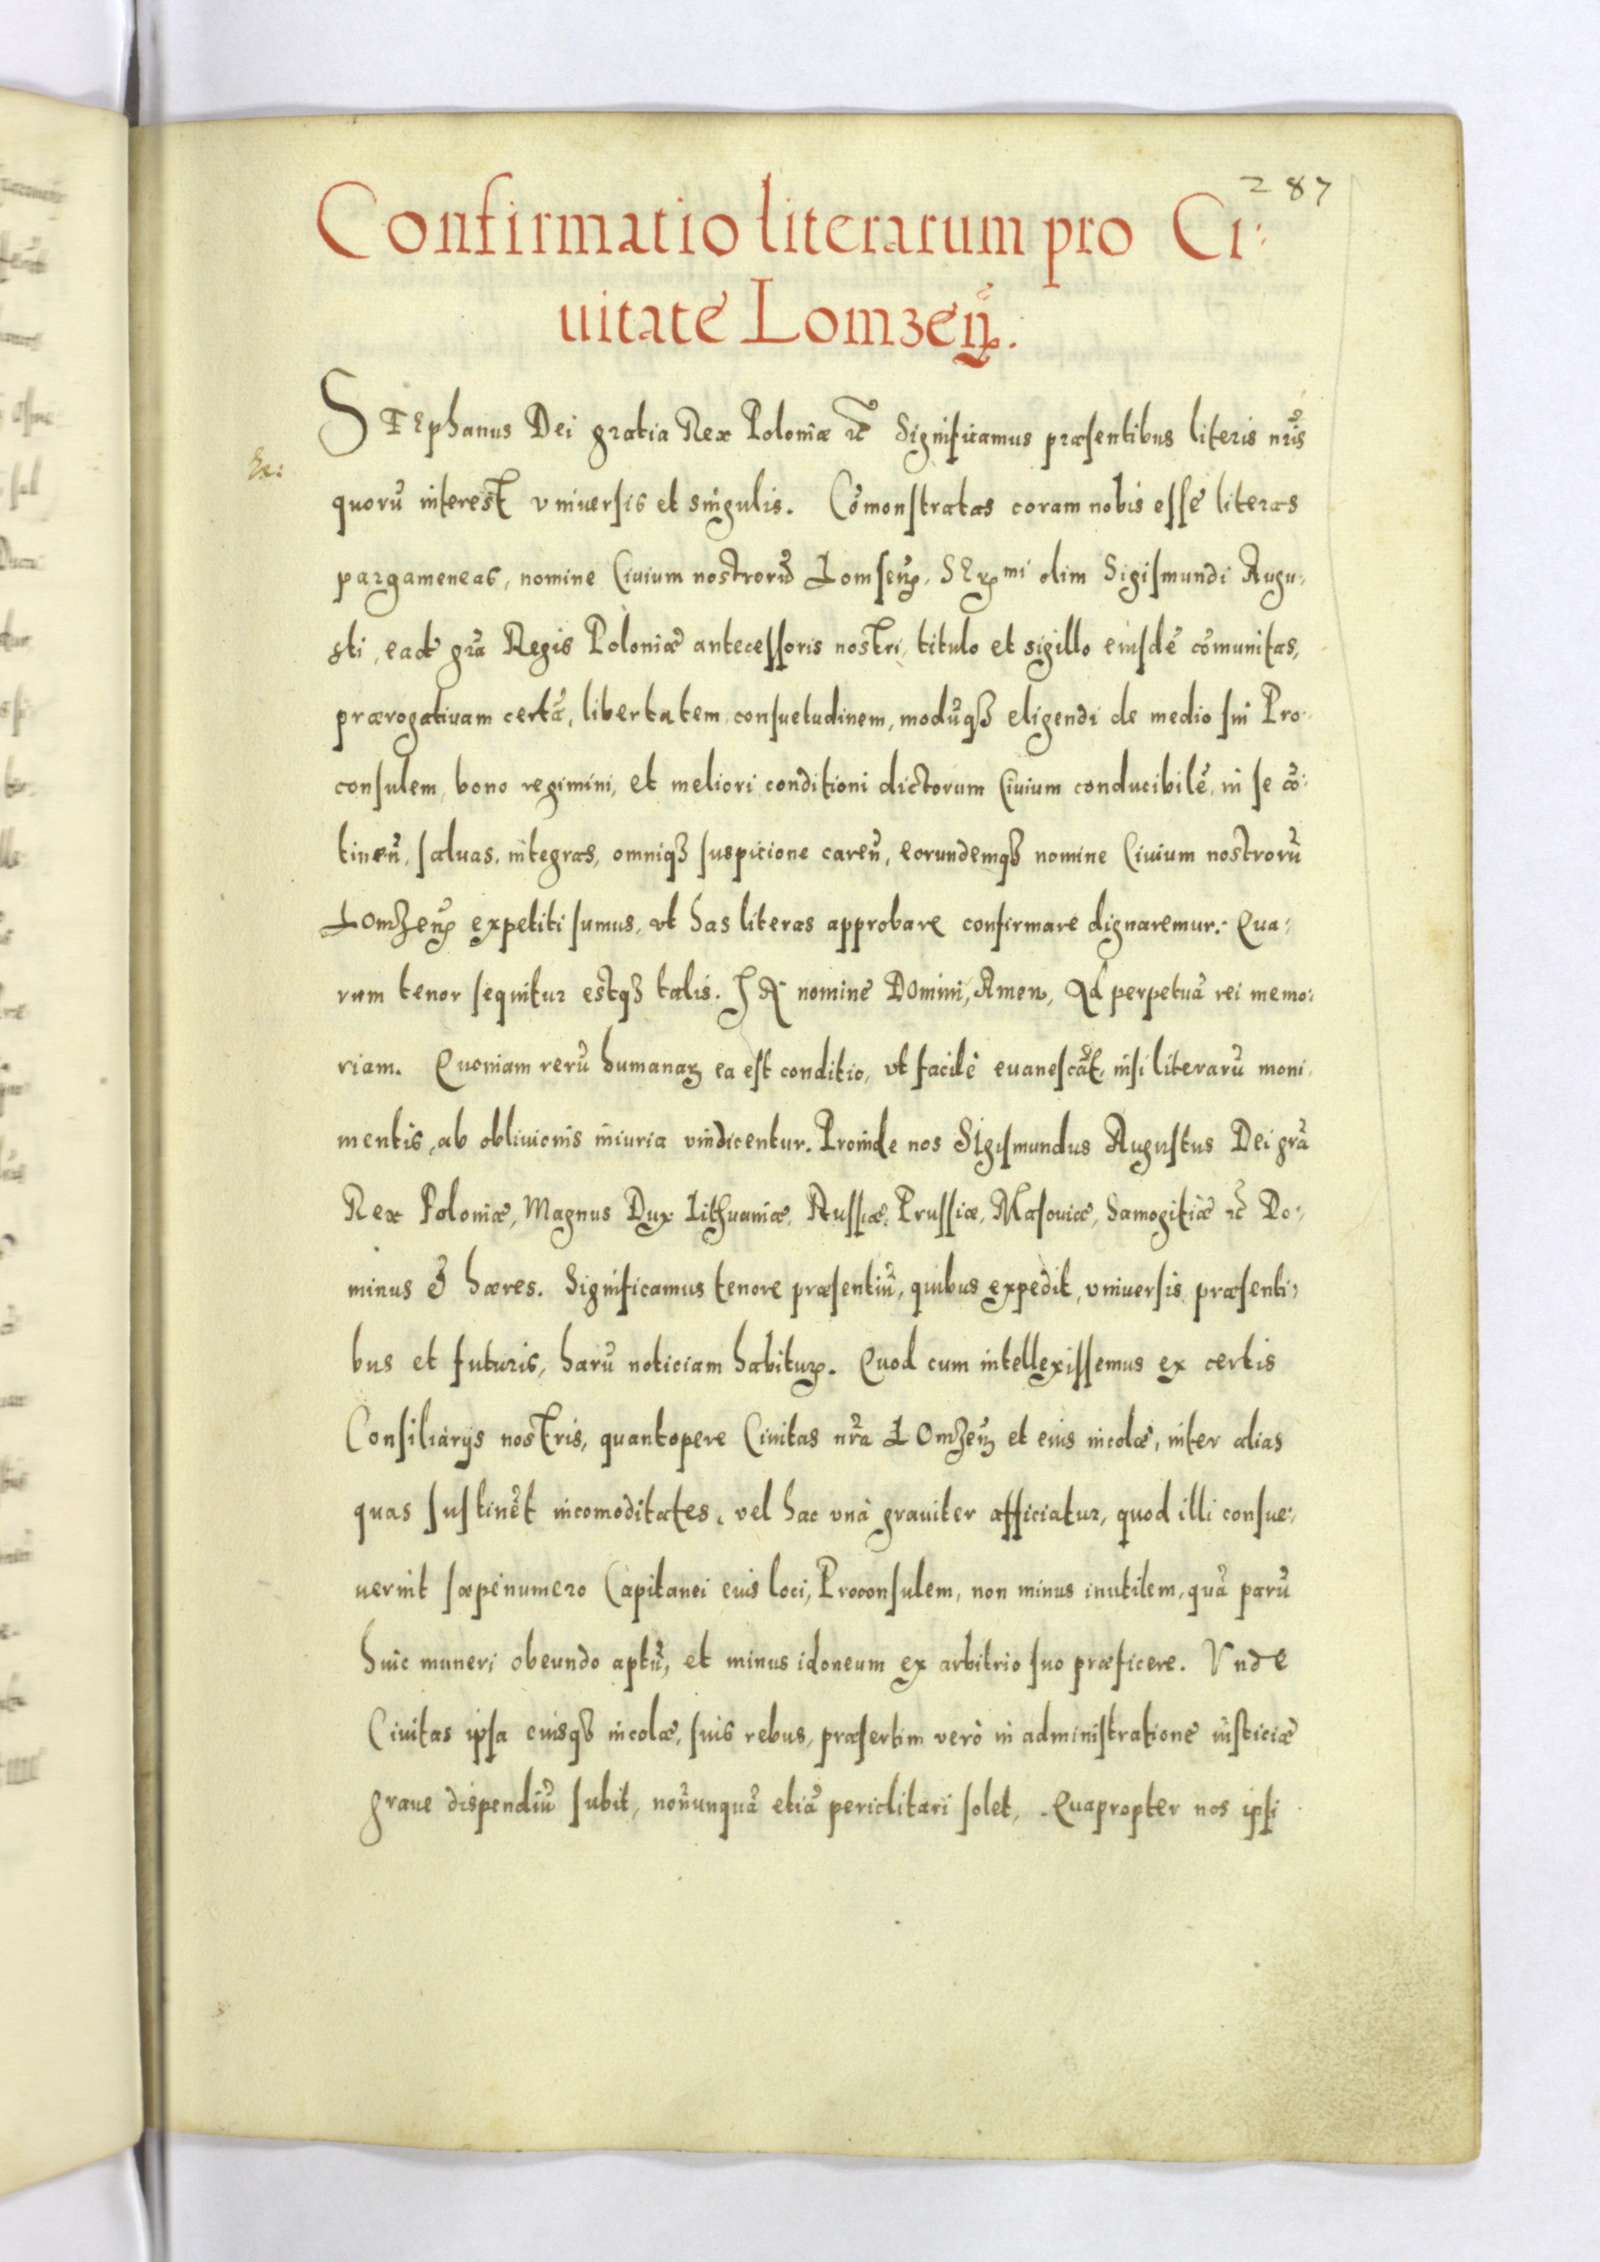 287
Confirmatio literarum pro Ci-
uitate Lomzeñ.
STEphanus Dei gratia Rex Poloniæ etc̃ Significamus præsentibus literis nr̃is
quorũ interest vniuersis et singulis. Cõmonstratas coram nobis esse literas
pargameneas, nomine Ciuium nostrorũ Lomseñ. SEr̃mi olim Sigismundi Augu-
sti, eadẽ gr̃a Regis Poloniæ antecessoris nostri, titulo et sigillo eiusdẽ cõmunitas,
prærogatiuam certã, libertatem, consuetudinem, modũqȝ eligendi de medio sui Pro-
consulem, bono regimini, et meliori conditioni dictorum Ciuium conducibilẽ, in se cõ-
tineñ, saluas, integras, omniqȝ suspicione careñ, eorundemqȝ nomine Ciuium nostrorũ
LOmzeñ expetiti sumus, vt has literas approbare confirmare dignaremur. Qua-
rum tenor sequitur estqȝ talis. IN nomine DOmini, Amen, Ad perpetuã rei memo-
riam. Quoniam rerũ humanaꝝ ea est conditio, vt facilè euanescãt, nisi literarũ moni-
mentis, ab obliuionis iniuria vindicentur. Proinde nos SIgismundus Augustus Dei gr̃a
Rex Poloniæ, Magnus Dux Lithuaniæ, Russiæ, Prussiæ, Masouiæ, Samogitiæ etc̃ Do-
minus & hæres. Significamus tenore præsentiũ, quibus expedit, vniuersis præsenti-
bus et futuris, harũ noticiam habituꝝ. Quod cum intellexissemus ex certis
Consiliarijs nostris, quantopere Ciuitas nr̃a LOmzeñ et eius incolæ, inter alias
quas sustinẽt incomoditates, vel hac vnà grauiter afficiatur, quod illi consue-
uerint sæpenumero Capitanei eius loci, Proconsulem, non minus inutilem, quã parũ
huic muneri obeundo aptũ, et minus idoneum ex arbitrio suo præficere. Vnde
Ciuitas ipsa eiusqȝ incolæ, suis rebus, præsertim verò in administratione iusticiæ
graue dispendiũ subit, nonũnquã etiã periclitari solet, Quapropter nos ipsi